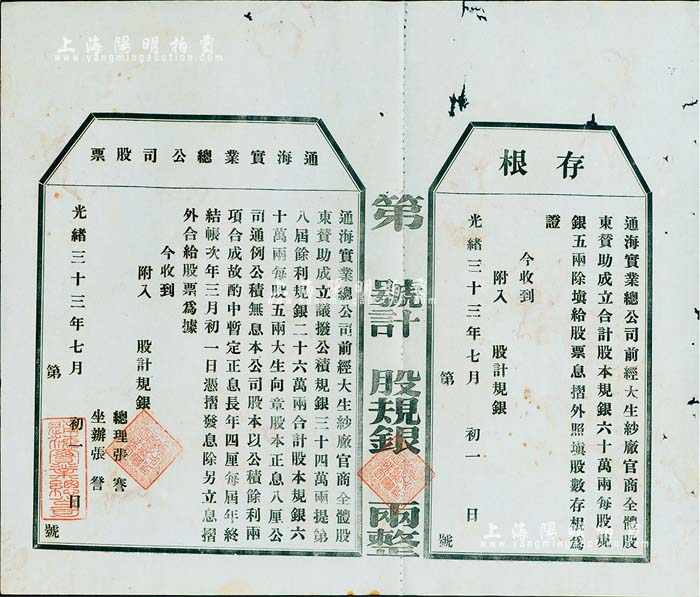 上海陽明拍賣
www.yangmingauction.com
存根
通海實業總公司前經大生紗廠官商全體股
東贊助成立合計股本規銀六十萬兩每股規
銀五兩除塡給股票息摺外照塡股數存根爲
證
今收到
附入 股計規銀
光緒三十三年七月 初一 日
第 號
第 號計 股規銀 兩整
通海實業總公司股票
通海實業總公司前經大生紗廠官商全體股
東贊助成立議撥公積規銀三十四萬兩提第
八屆餘利規銀二十六萬兩合計股本規銀六
十萬兩每股五兩大生向章股本正息八厘公
司通例公積無息本公司股本以公積餘利兩
項合成故酌中暫定正息長年四厘每屆年終
結帳次年三月初一日憑摺發息除另立息摺
外合給股票爲據
今收到
附入 股計規銀
光緒三十三年七月 初一 日
總理張謇
坐辦張詧
第 號
上海陽明拍賣
www.yangmingauction.com